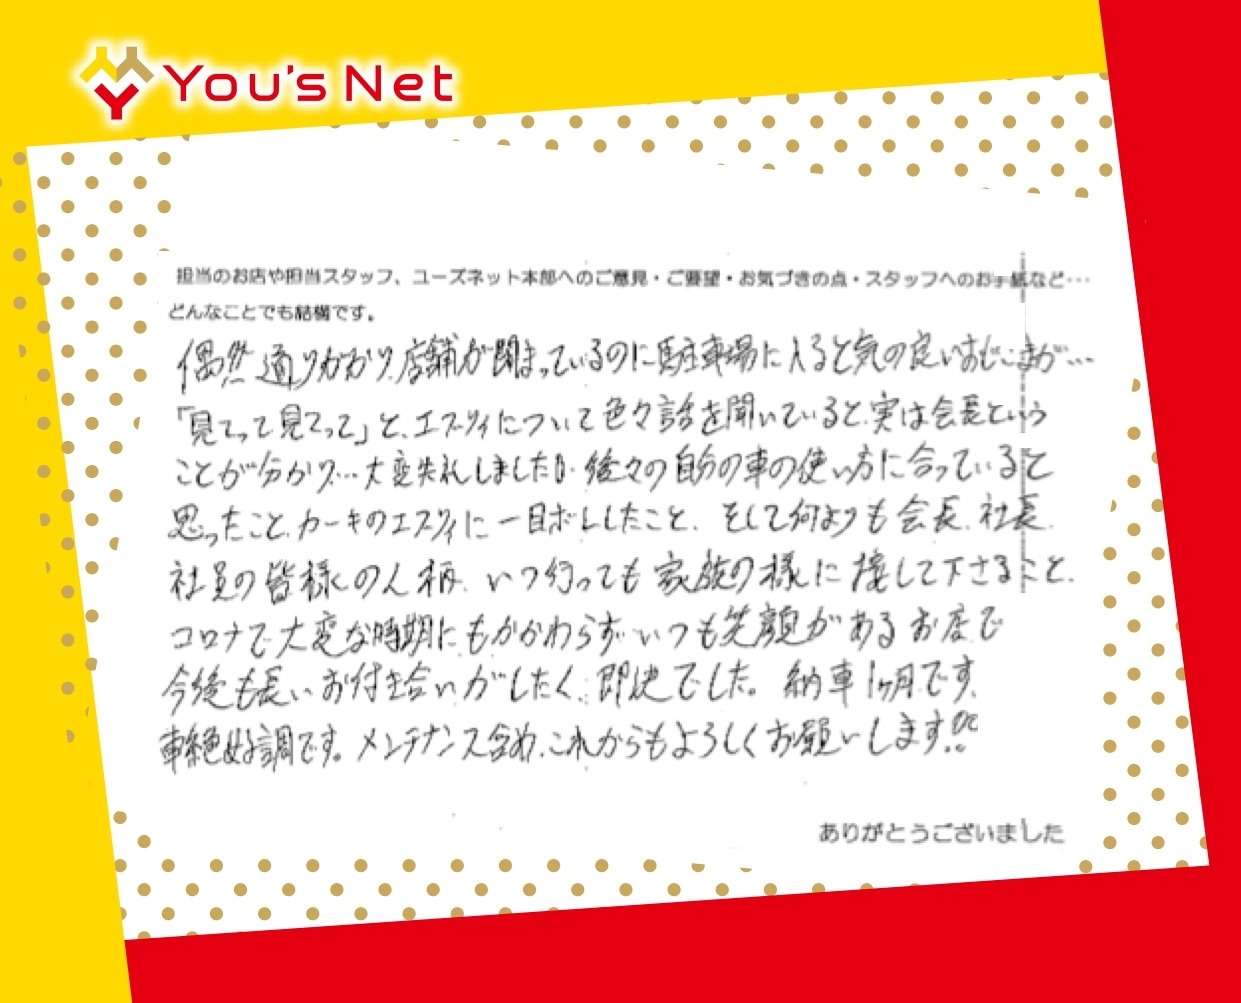 You's Net
担当のお店や担当スタッフ、ユーズネット本部へのご意見・ご要望・お気づきの点・スタッフへのお手紙など…
どんなことでも結構です。
偶然通りがかり、店舗が閉まっているのに駐車場に入ると気の良いおじさまが…
「見てって見てって」と、エスティについて色々話を聞いていると、実は会長という
ことが分かり…大変失礼しました!! 後々の自分の車の使い方に合っていると
思ったこと、カーキのエスティに一目ボレしたこと、そして何よりも会長、社長、
社員の皆様の人柄、いつ行っても家族の様に接して下さること、
コロナで大変な時期にもかかわらず、いつも笑顔があるお店で
今後も長いお付き合いがしたく、即決でした。納車1ヶ月です。
車絶好調です。メンテナンス含め、これからもよろしくお願いします!!
ありがとうございました